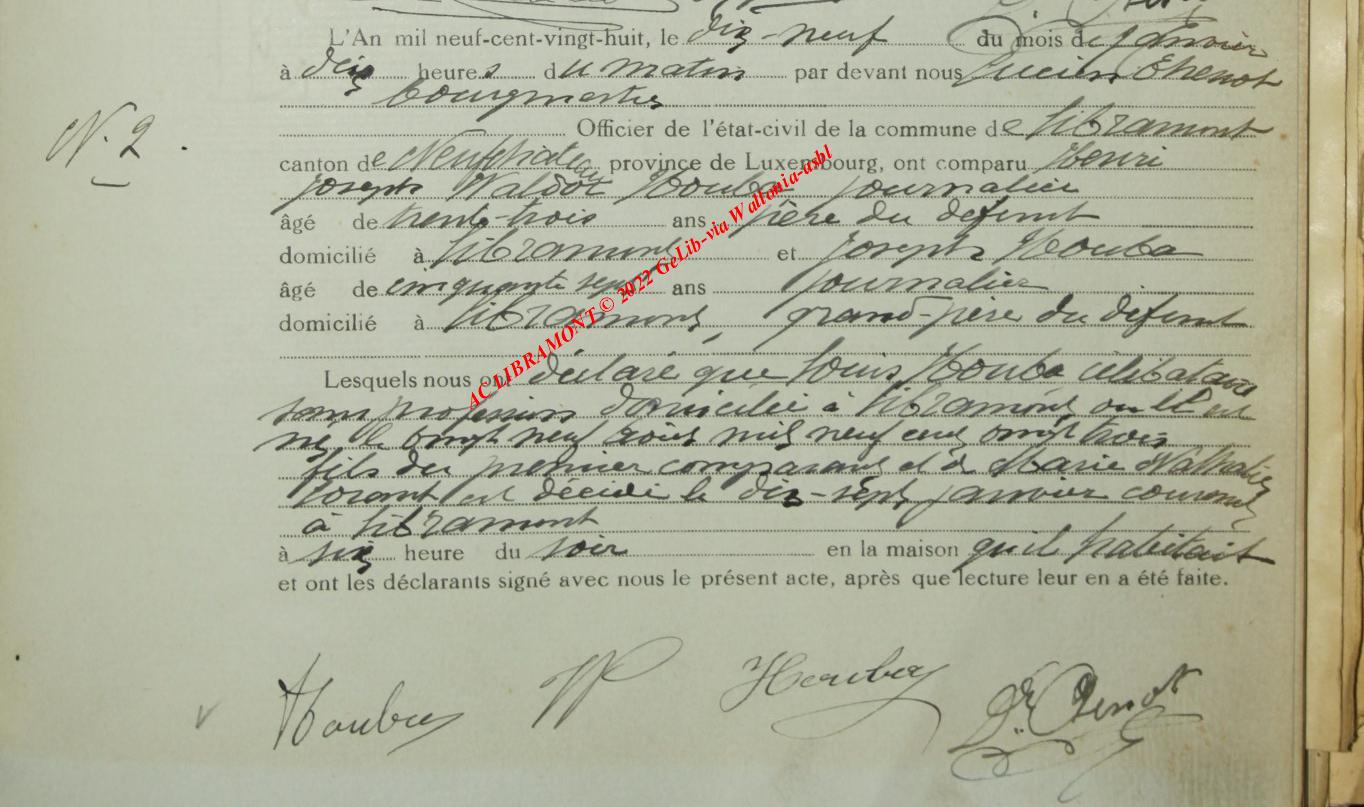 L'An mil neuf-cent-vingt-huit, le dix-neuf du mois de janvier
à dix heures du matin par devant nous Lucien Thenot
bourgmestre
N. 2
Officier de l'état-civil de la commune de Libramont
canton de Neufchateau province de Luxembourg, ont comparu Henri
Joseph Houba journalier
âgé de trente-trois ans père du défunt
domicilié à Libramont et Joseph Houba
âgé de cinquante sept ans journalier
domicilié à Libramont, grand-père du défunt
Lesquels nous ont déclaré que Louis Houba célibataire
sans profession domicilié à Libramont où il est
né le vingt neuf août mil neuf cent vingt trois
fils du premier comparant et de Marie
est décédé le dix-sept janvier courant
à Libramont
à six heure du soir en la maison qu'il habitait
et ont les déclarants signé avec nous le présent acte, après que lecture leur en a été faite.
Houba Houba Dr. Thenot
AC LIBRAMONT © 2022 GeLib-via Wallonia-asbl